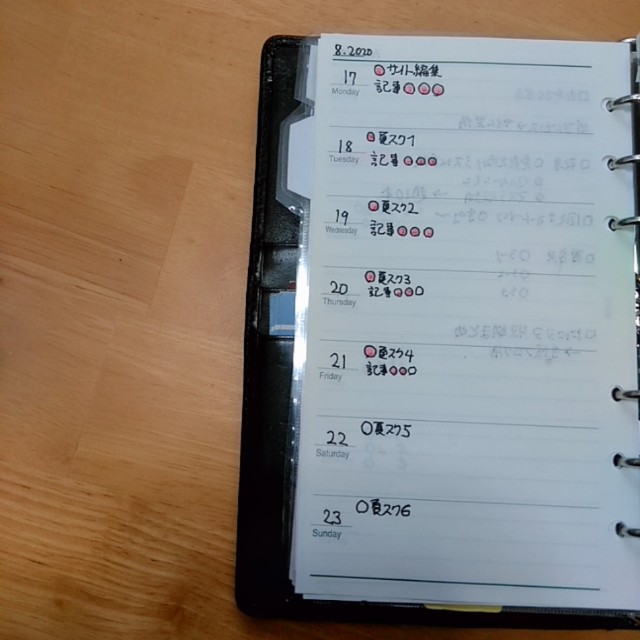 8.2020
17 ○サイト編集
Monday 記事○○○
18 ○夏スク1
Tuesday 記事○○○
19 ○夏スク2
Wednesday 記事○○○
20 ○夏スク3
Thursday 記事○○○
21 ○夏スク4
Friday 記事○○○
22 ○夏スク5
Saturday
23 ○夏スク6
Sunday